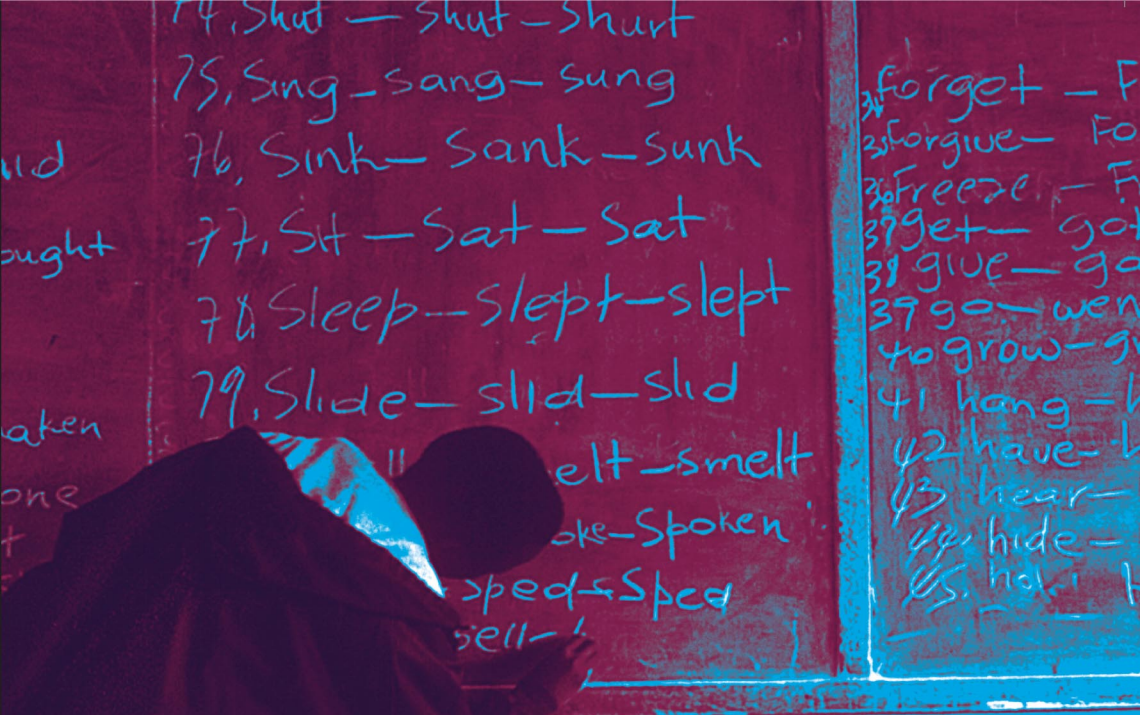 uld
ought
aken
one
t
74. Shut – shut – shurt
75. Sing – sang – sung
76. Sink – Sank – sunk
77. Sit – Sat – Sat
78. Sleep – slept – slept
79. Slide – slid – slid
ll elt – smelt
oke – Spoken
sped – Sped
sell –
34 Forget – F
35 Forgive – Fo
36 Freeze – F
37 get – got
38 give – ga
39 go – wen
40 grow – gr
41 hang – h
42 have – h
43 hear –
44. hide –
45.